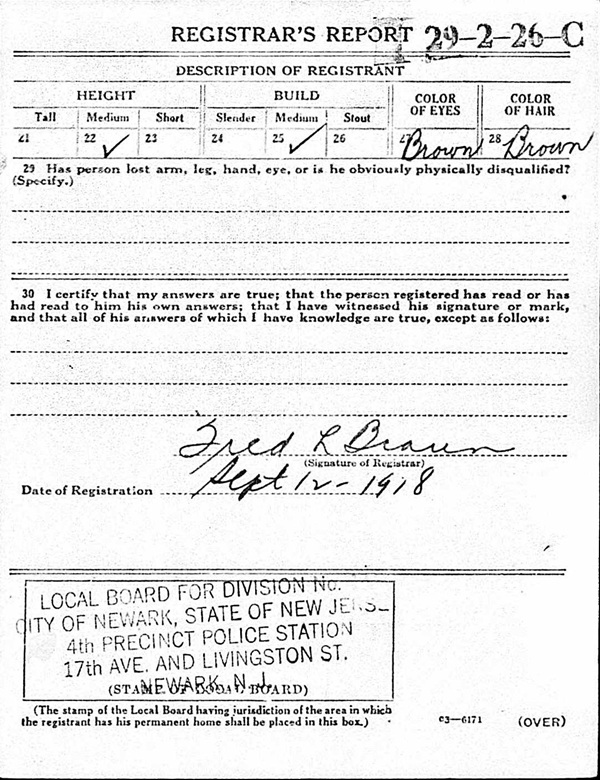 REGISTRAR'S REPORT 29-2-26-C
DESCRIPTION OF REGISTRANT
HEIGHT BUILD COLOR OF EYES COLOR OF HAIR
Tall Medium Short Slender Medium Stout
21 22 ✓ 23 24 25 ✓ 26 27 Brown 28 Brown
29 Has person lost arm, leg, hand, eye, or is he obviously physically disqualified?
(Specify.)
30 I certify that my answers are true; that the person registered has read or has
had read to him his own answers; that I have witnessed his signature or mark,
and that all of his answers of which I have knowledge are true, except as follows:
Fred L Braun
(Signature of Registrar)
Date of Registration Sept 12-1918
LOCAL BOARD FOR DIVISION No.
CITY OF NEWARK, STATE OF NEW
4th PRECINCT POLICE STATION
17th AVE. AND LIVINGSTON ST.
NEWARK, N. J.
(STAMP OF LOCAL BOARD)
(The stamp of the Local Board having jurisdiction of the area in which
the registrant has his permanent home shall be placed in this box.)
03—6171 (OVER)